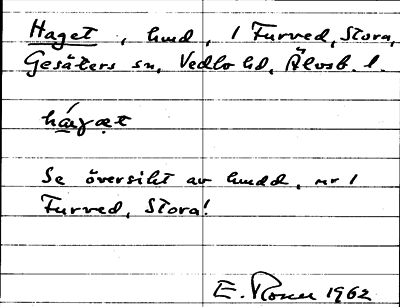 Haget, hmd, 1 Furved, Stora,
Gesäters sn, Vedbo hd, Älvsb. l.
Se översikt av hmdd, nr 1
Furved, Stora!
E. Rosell 1962